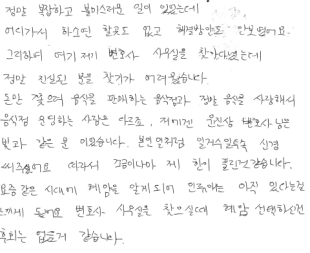 정말 복잡하고 불미스러운 일이 있었는데
어디가서 하소연 할곳도 없고 해결방안도 안보였어요.
그리하여 여기저기 변호사 사무실을 찾아다녔는데
정말 진실된 분을 찾기가 어려웠습니다
돈만 쫓으며 음식을 판매하는 음식점과 정말 음식을 사랑해서
음식점 운영하는 사람은 다르죠. 저에겐 윤진상 변호사님은
빛과 같은 분 이었습니다. 본인 일처럼 일거수일투족 신경
써주셨어요 따라서 조금이나마 제 한이 풀린것 같습니다.
요즘같은 시대에 혜암을 알게되어 인연이라는 아직 있다는걸
느끼게 됐어요 변호사 사무실을 찾으실때 혜암 선택하신건
후회는 없을거 같습니다.